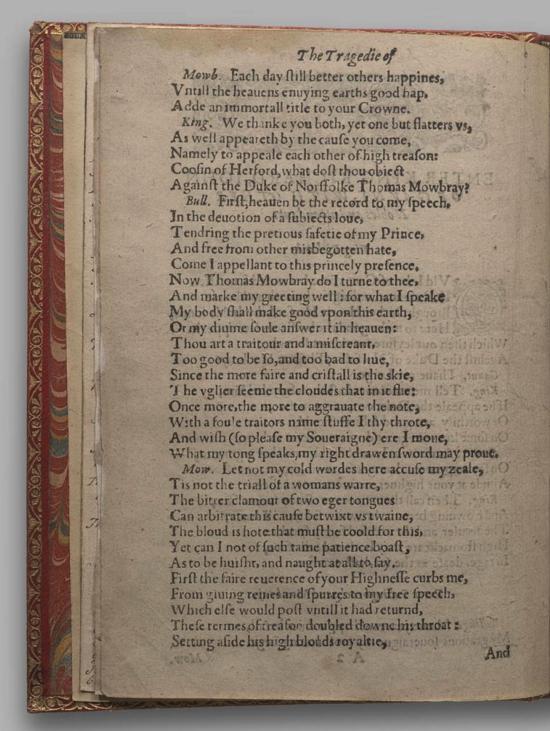 The Tragedie of
Mowb. Each day ſtill better others happines,
Vntill the heauens enuying earths good hap,
Adde an immortall title to your Crowne.
King. We thanke you both, yet one but flatters vs,
As well appeareth by the cauſe you come,
Namely to appeale each other of high treaſon:
Cooſin of Herford, what doſt thou obiect
Againſt the Duke of Norffolke Thomas Mowbray?
Bull. Firſt, heauen be the record to my ſpeech,
In the deuotion of a ſubiects loue,
Tendring the pretious ſafetie of my Prince,
And free from other misbegotten hate,
Come I appellant to this princely preſence,
Now Thomas Mowbray do I turne to thee,
And marke my greeting well: for what I ſpeake
My body ſhall make good vpon this earth,
Or my diuine ſoule anſwer it in heauen:
Thou art a traitour and a miſcreant,
Too good to be ſo, and too bad to liue,
Since the more faire and criſtall is the skie,
The vglier ſeeme the cloudes that in it flie:
Once more, the more to aggrauate the note,
With a foule traitors name ſtuffe I thy throte,
And wiſh (ſo pleaſe my Soueraigne) ere I moue,
What my tong ſpeaks, my right drawen ſword may proue.
Mow. Let not my cold wordes here accuſe my zeale,
Tis not the triall of a womans warre,
The bitter clamour of two eger tongues
Can arbitrate this cauſe betwixt vs twaine,
The bloud is hote that muſt be coold for this,
Yet can I not of ſuch tame patience boaſt,
As to be huiſht, and naught at all to ſay.
Firſt the faire reuerence of your Highneſſe curbs me,
From giuing reines and ſpurres to my free ſpeech,
Which elſe would poſt vntill it had returnd,
Theſe termes of treaſon doubled downe his throat:
Setting aſide his high blouds royaltie,
And